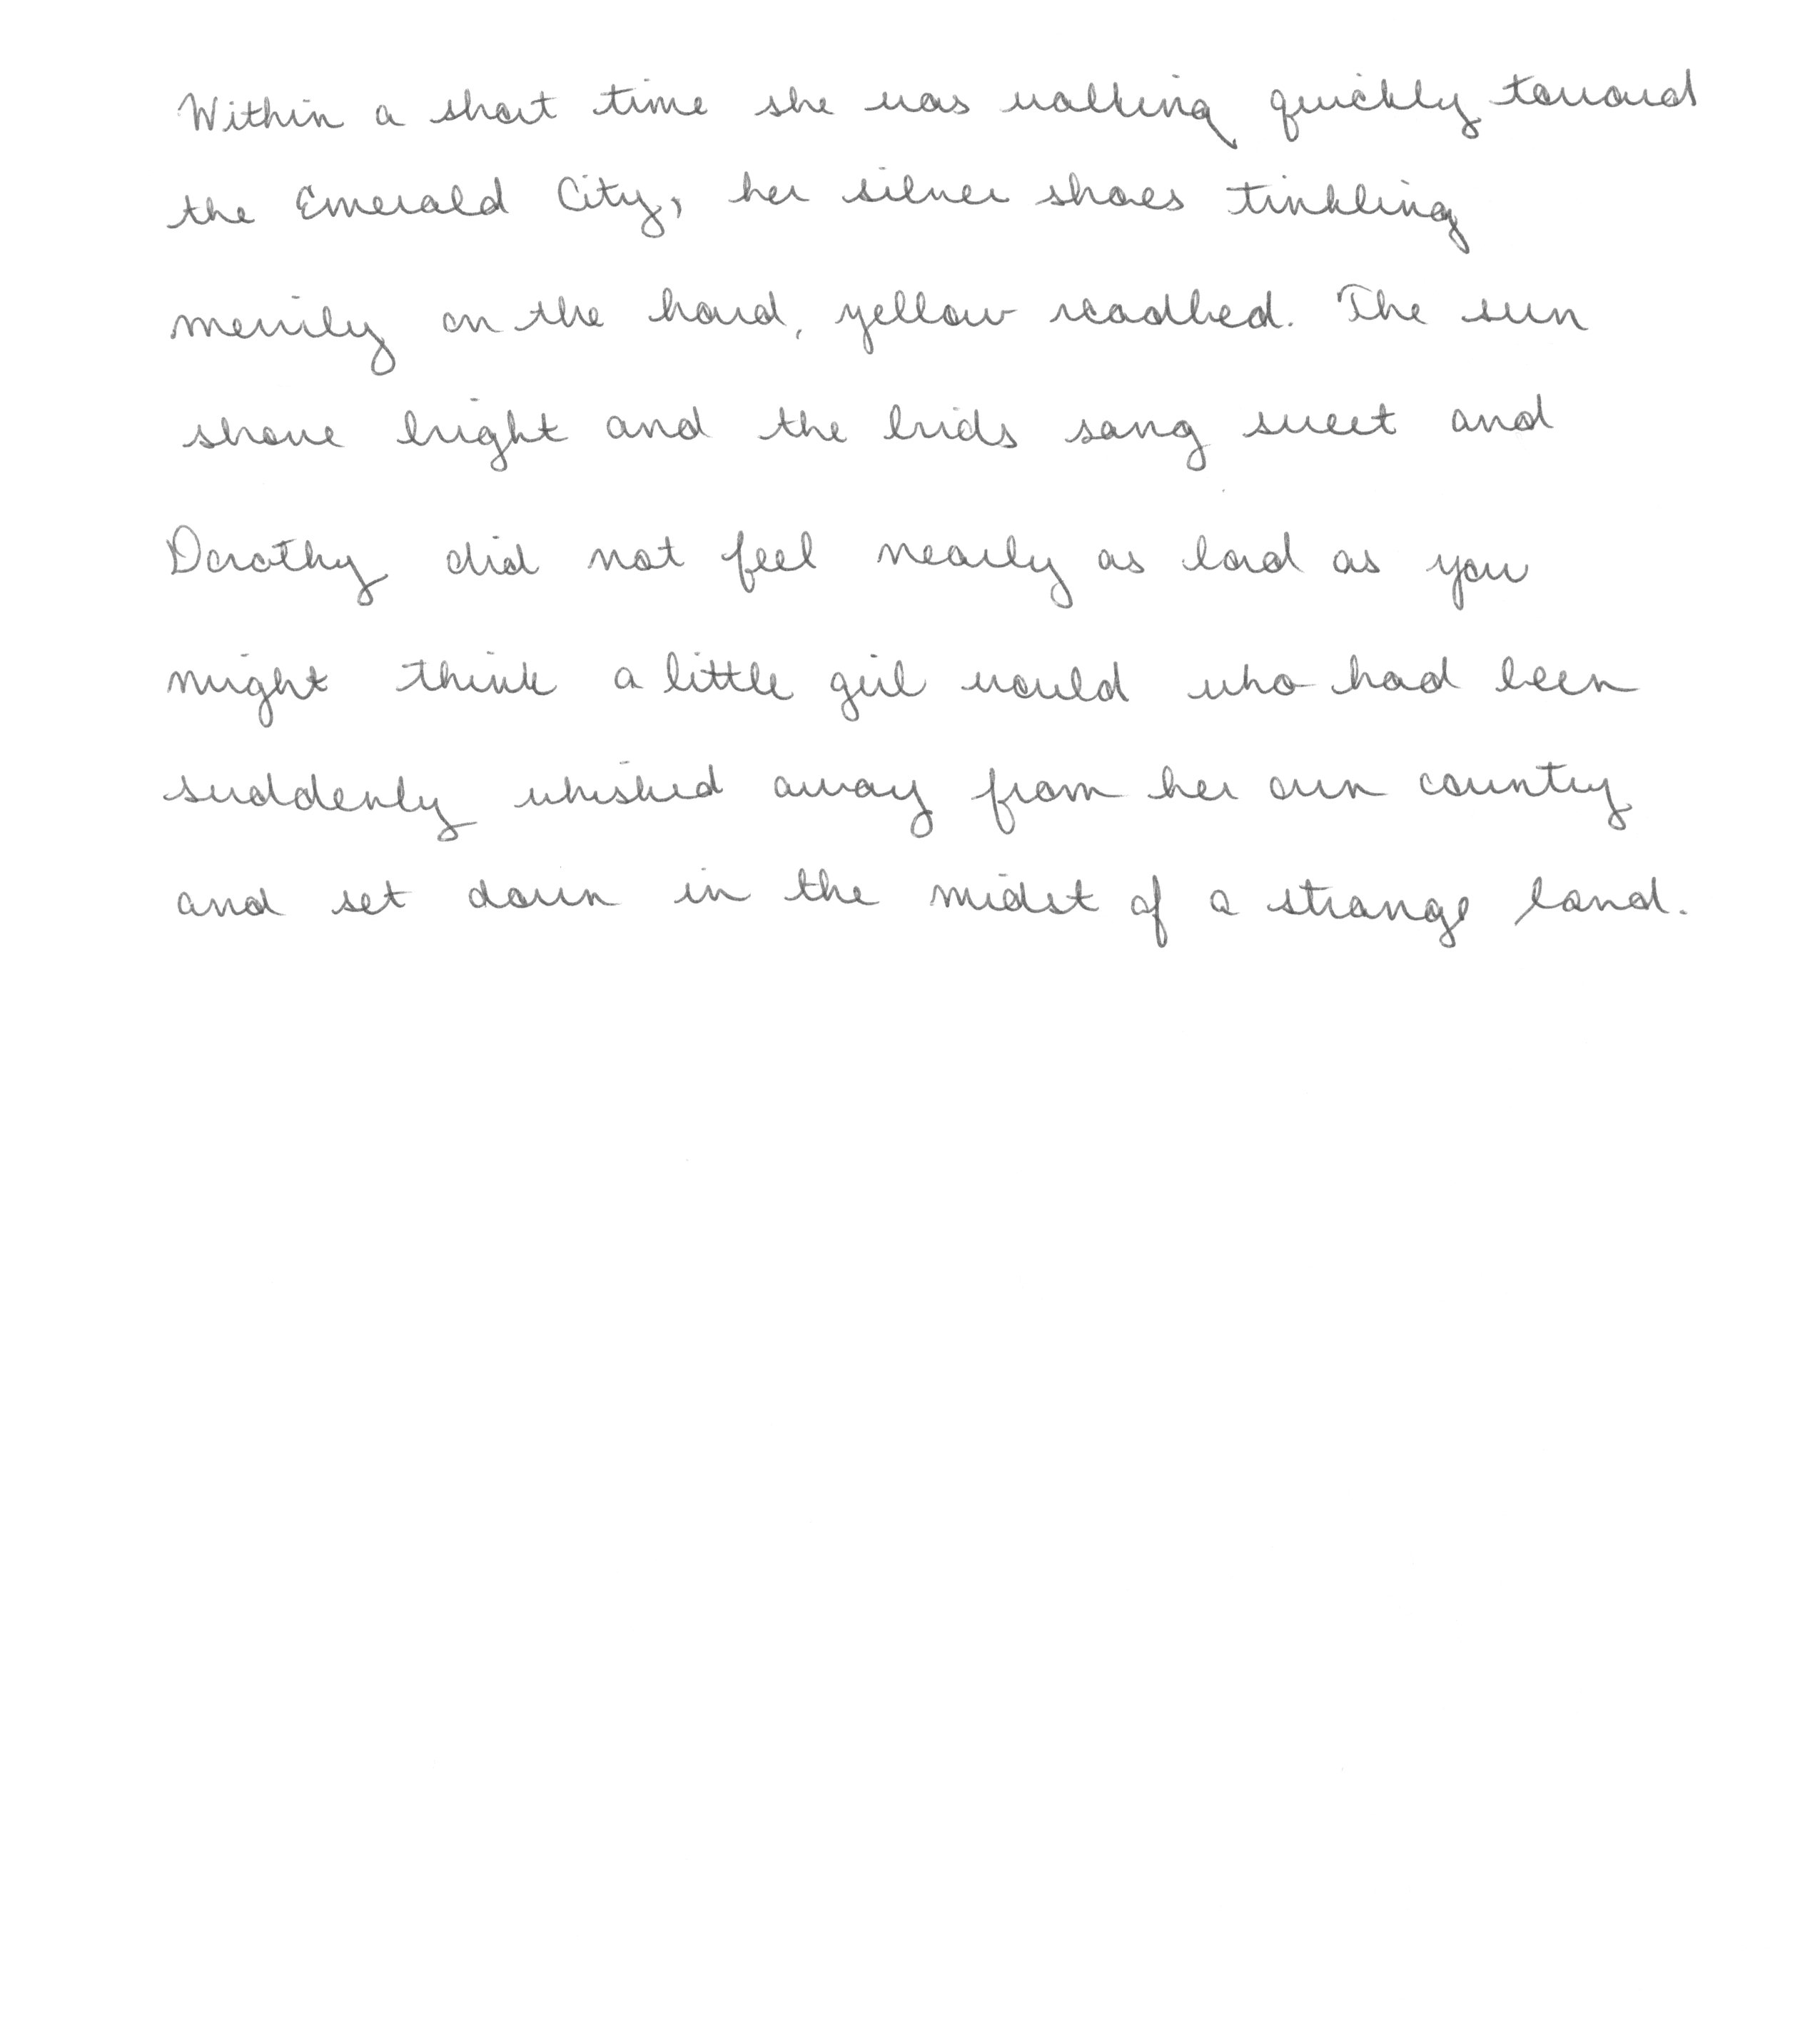 Within a short time she was walking quickly toward
the Emerald City, her silver shoes tinkling
merrily on the hard, yellow roadbed. The sun
shone bright and the birds sang sweet and
Dorothy did not feel nearly as bad as you
might think a little girl would who had been
suddenly whisked away from her own country
and set down in the midst of a strange land.